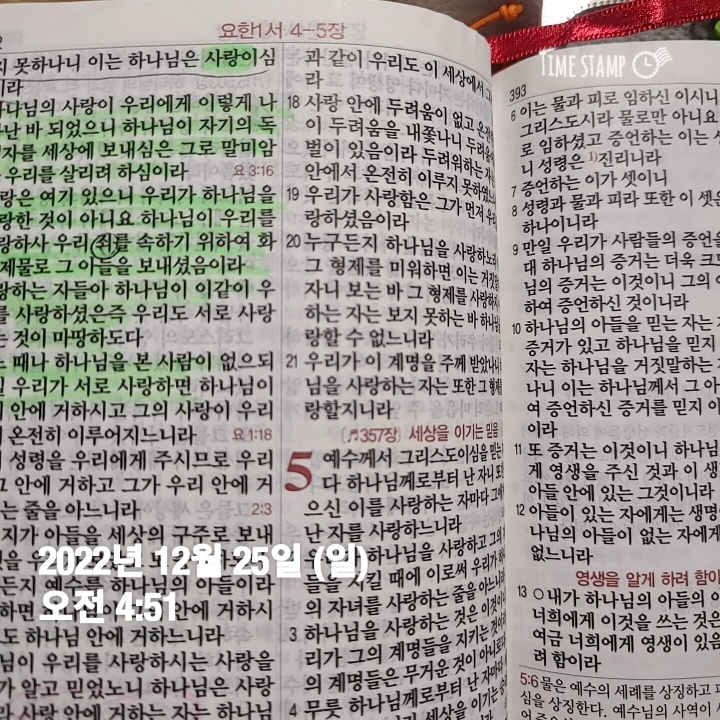 요한1서 4-5장
지 못하나니 이는 하나님은 사랑이심
이라
하나님의 사랑이 우리에게 이렇게 나
난 바 되었으니 하나님이 자기의 독
자를 세상에 보내심은 그로 말미암
우리를 살리려 하심이라 요 3:16
랑은 여기 있으니 우리가 하나님을
랑한 것이 아니요 하나님이 우리를
랑하사 우리 죄를 속하기 위하여 화
제물로 그 아들을 보내셨음이라
랑하는 자들아 하나님이 이같이 우
를 사랑하셨은즉 우리도 서로 사랑
는 것이 마땅하도다
느 때나 하나님을 본 사람이 없으되
일 우리가 서로 사랑하면 하나님이
안에 거하시고 그의 사랑이 우리
온전히 이루어지느니라 요 1:18
성령을 우리에게 주시므로 우리
그 안에 거하고 그가 우리 안에 거
는 줄을 아느니라 2:3
지가 아들을 세상의 구주로 보내
든지 예수를 하나님의 아들이라
하면 안에 거하시
도 하나님 안에 거하느니라
님이 우리를 사랑하시는 사랑을
가 알고 믿었노니 하나님은 사랑
과 같이 우리도 이 세상에서
라
18 사랑 안에 두려움이 없고
이 두려움을 내쫓나니
벌이 있음이라 두려워하는
안에서 온전히 이루지 못하였
19 우리가 사랑함은 그가 먼저
랑하셨음이라
20 누구든지 하나님을 사랑하노라
그 형제를 미워하면 이는
자니 보는 바 그 형제를 사랑하지
하는 자는 보지 못하는 바 하나님
랑할 수 없느니라
21 우리가 이 계명을 주께 받았나니
님을 사랑하는 자는 또한 그 형제
랑할지니라
(♬357장) 세상을 이기는 믿음
5 예수께서 그리스도이심을 믿는
다 하나님께로부터 난 자니 또한
으신 이를 사랑하는 자마다
난 자를 사랑하느니라
하나님을 사랑하고 그의
들을 지킬 때에 이로써 우리가
의 자녀를 사랑하는 줄을 아느니라
3 하나님을 사랑하는 것은 이것이니
리가 그의 계명들을 지키는 것이라
계명들은 무거운 것이 아니로다
4 무릇 하나님께로부터 난 자마다
상을 이기느니라 세상을
393
6 이는 물과 피로 임하신 이시니
그리스도시라 물로만 아니요
로 임하셨고 증언하는 이는
니 성령은 1)진리니라
7 증언하는 이가 셋이니
8 성령과 물과 피라 또한 이 셋은
하나이니라
9 만일 우리가 사람들의 증언을
대 하나님의 증거는 더욱
님의 증거는 이것이니 그의
하여 증언하신 것이니라
10 하나님의 아들을 믿는 자는
증거가 있고 하나님을 믿지
자는 하나님을 거짓말하는
나니 이는 하나님께서 그
여 증언하신 증거를 믿지
이라
11 또 증거는 이것이니 하나님
게 영생을 주신 것과 이 생
아들 안에 있는 그것이니라
12 아들이 있는 자에게는 생명
나님의 아들이 없는 자에게
없느니라
영생을 알게 하려 함이
13 ○내가 하나님의 아들의
너희에게 이것을 쓰는 것은
여금 너희에게 영생이 있음
려 함이라
5:6 물은 예수의 세례를 상징하고
심을 상징한다. 예수님의 사역이
TIME STAMP
2022년 12월 25일 (일)
오전 4:51